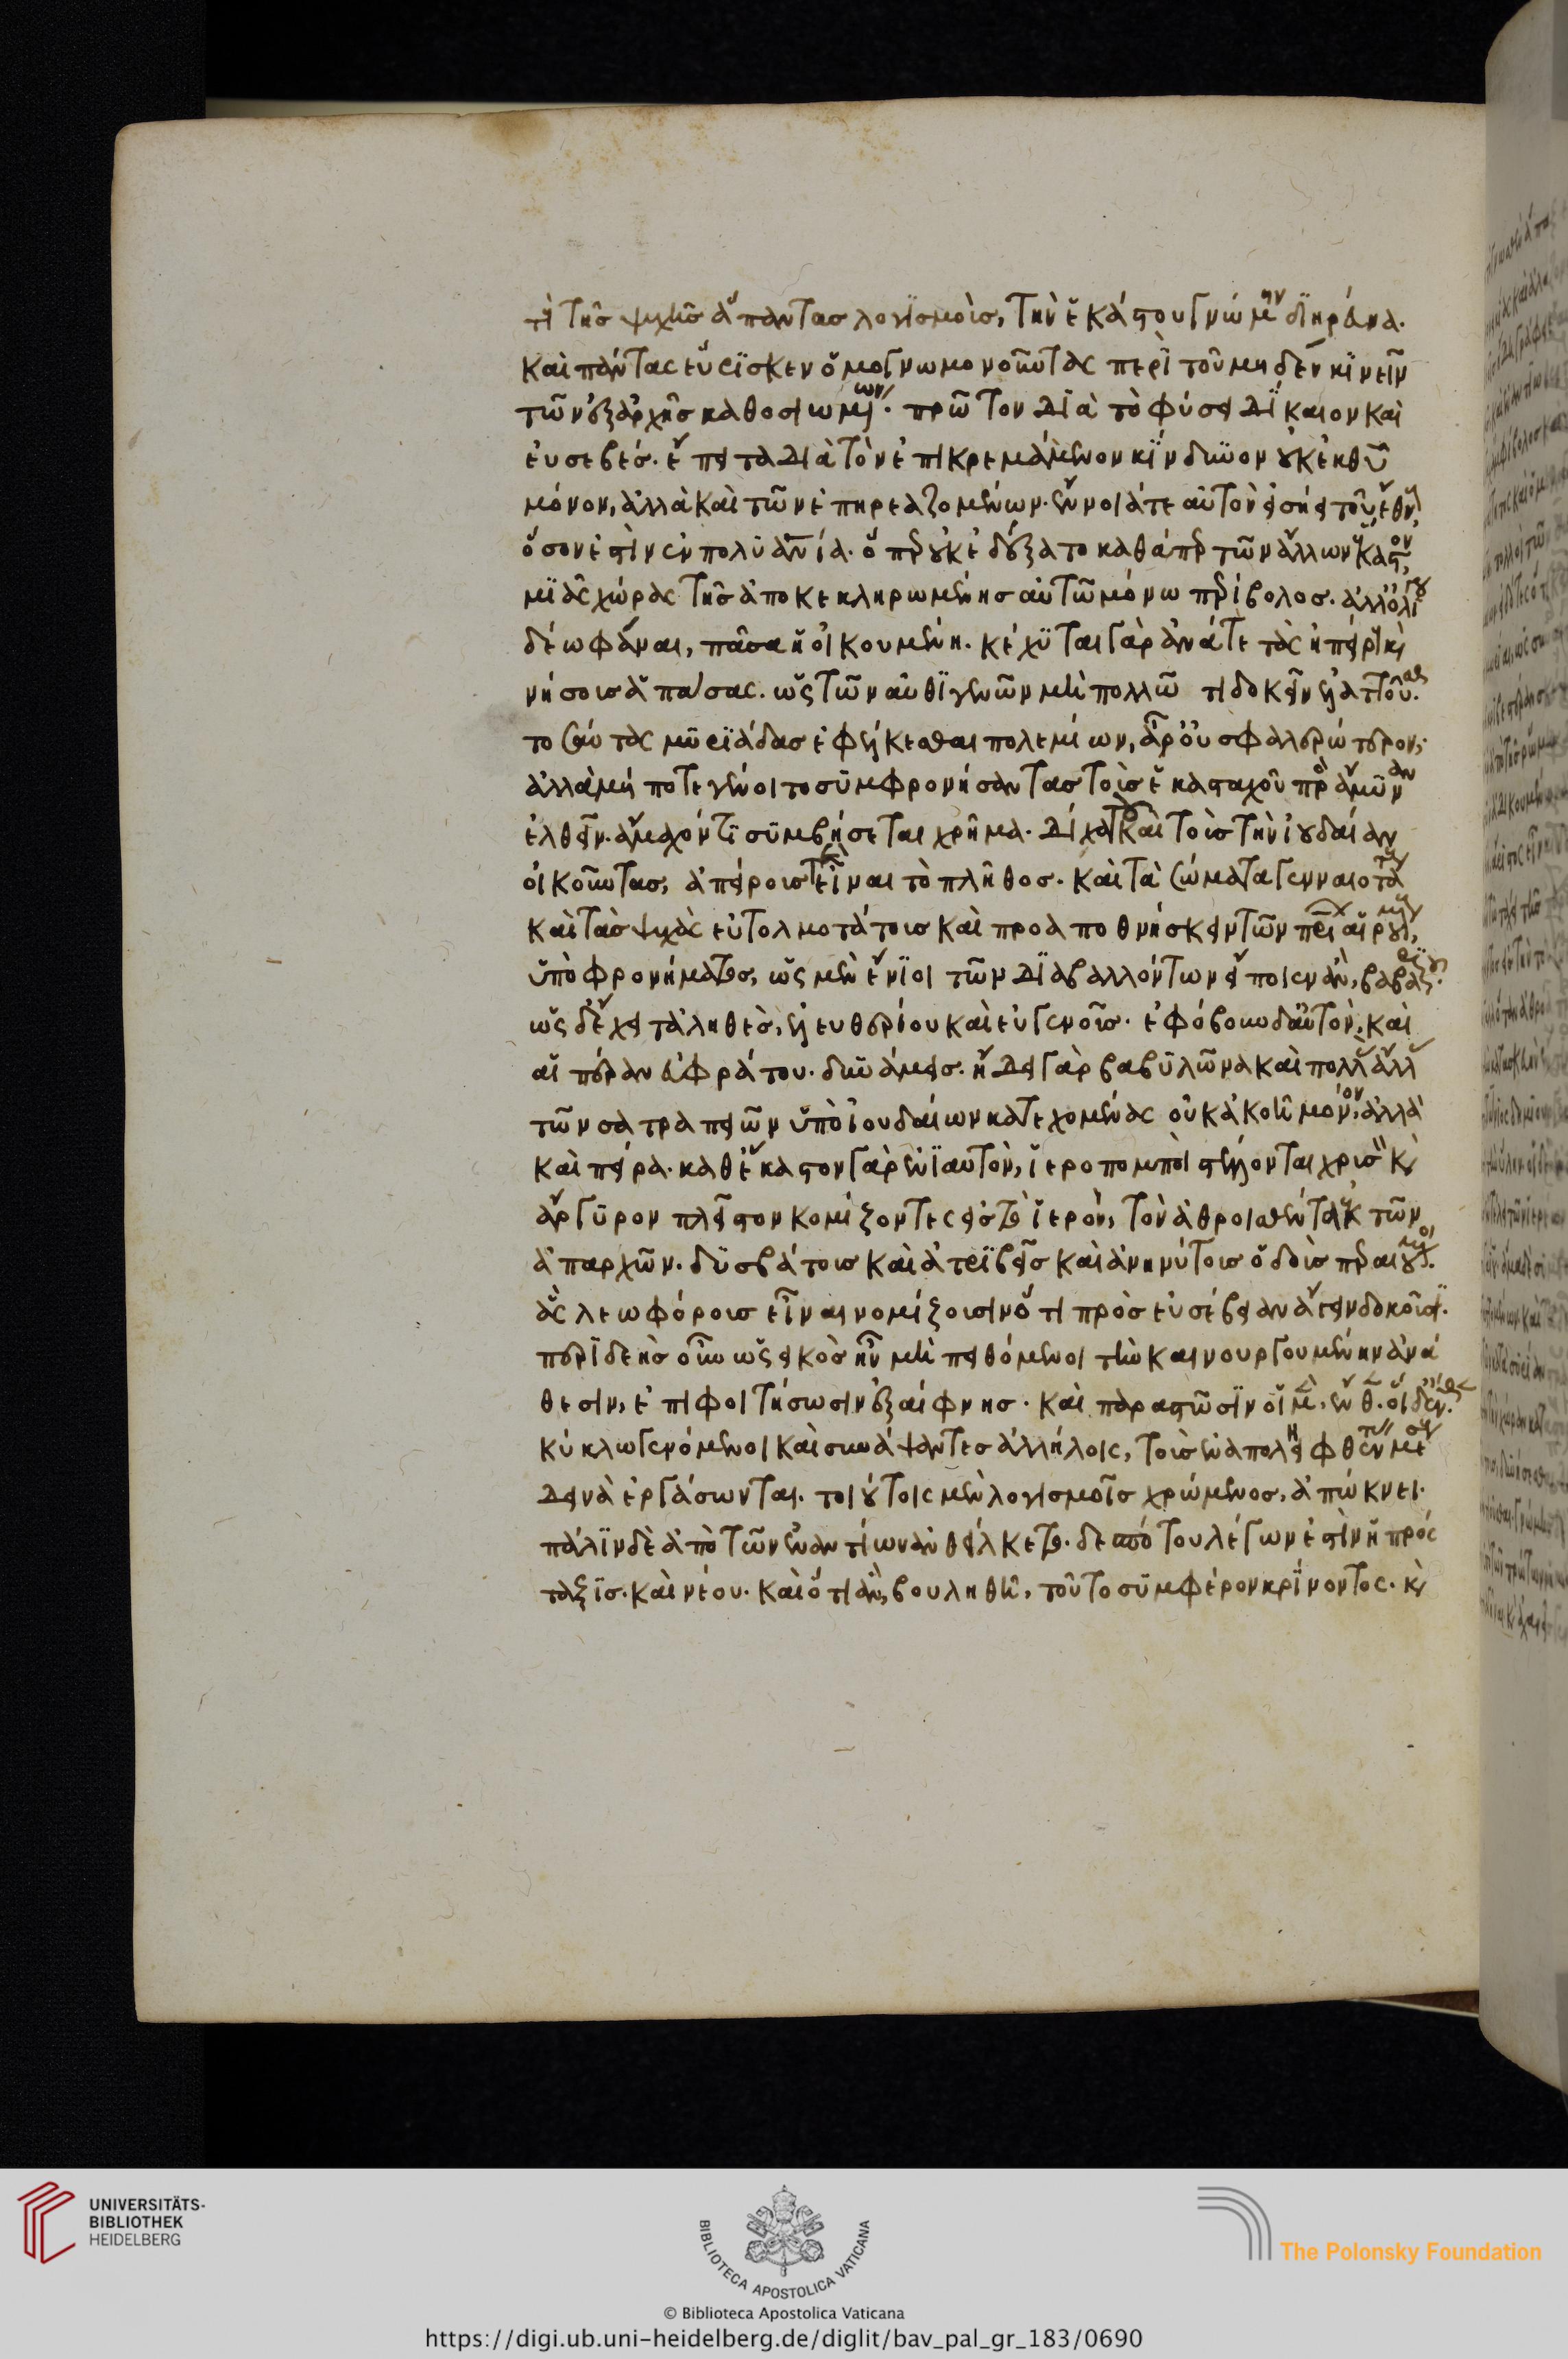 τι τῆς ψυχῆς ἅπαντας λογισμοῖς, τὴν ἑκάστου γνώμην διηρεύνα.
καὶ πάντας εὕρισκεν ὁμογνωμονοῦντας περὶ τοῦ μηδὲν κινεῖν
τῶν ἐξαρχῆς καθοσιωμένων. πρῶτον διὰ τὸ φύσει δίκαιον καὶ
εὐσεβές. ἔπειτα διὰ τὸν ἐπικρεμάμενον κίνδυνον οὐκ ἐκ θεοῦ
μόνον, ἀλλὰ καὶ τῶν ἐπηρεαζομένων. ἔννοιά τε αὐτὸν εἰσήει τοῦ ἔθνους,
ὅσον ἐστὶν ἐν πολυανθρωπία. ὅπερ οὐκ ἐδέξατο καθάπερ τῶν ἄλλων ἕκαστον,
μιᾶς χώρας τῆς ἀποκεκληρωμένης αὐτῶ μόνω περίβολος. ἀλλ' ὀλίγου
δέω φάναι, πᾶσα ἡ οἰκουμένη. κέχυται γὰρ ἀνά τε τὰς ἠπείρους καὶ
νήσους ἁπάσας. ὡς τῶν αὐθιγενῶν μὴ πολλῶ τι δοκεῖν ἐλαττοῦσθαι.
τοσαύτας μυριάδας ἐφέλκεσθαι πολεμίων, ἆρ' οὐ σφαλερώτερον;
ἀλλὰ μή ποτε γένοιτο συμφρονήσαντας τοὺς ἑκασταχοῦ πρὸς ἄμυναν
ἐλθεῖν. ἄμαχόν τι συμβήσεται χρῆμα. δίχα τοῦ καὶ τοὺς τὴν ἰουδαίαν
οἰκοῦντας, ἀπείρους τε εἶναι τὸ πλῆθος. καὶ τὰ σώματα γενναιοτάτους
καὶ τὰς ψυχὰς εὐτολμοτάτους καὶ προαποθνήσκειν τῶν πατρίων αἱρουμένους,
ὑπὸ φρονήματος, ὡς μὲν ἔνιοι τῶν διαβαλλόντων εἴποιεν ἂν, βαρβαρικοῦ.
ὡς δὲ ἔχει τἀληθὲς, ἐλευθερίου καὶ εὐγενοῦς. ἐφόβουν δ' αὐτὸν, καὶ
αἱ πέραν εὐφράτου δυνάμεις. ἤδει γὰρ βαβυλῶνα καὶ πολλὰς ἄλλας
τῶν σατραπειῶν ὑπὸ ἰουδαίων κατεχομένας οὐκ ἀκοῆ μόνον, ἀλλὰ
καὶ πείρα. καθ' ἕκαστον γὰρ ἐνιαυτὸν, ἱεροπομποὶ στέλλονται χρυσὸν καὶ
ἄργυρον πλεῖστον κομίζοντες εἰς τὸ ἱερὸν, τὸν ἀθροισθέντα ἐκ τῶν
ἀπαρχῶν. δυσβάτους καὶ ἀτριβεῖς καὶ ἀνηνύτους ὁδοὺς περαιούμενοι.
ἃς λεωφόρους εἶναι νομίζουσιν ὅτι πρὸς εὐσέβειαν ἄγειν δοκοῦσιν.
περιδεὴς οὖν ὡς εἰκὸς ἦν μὴ πυθόμενοι τὴν καινουργουμένην ἀνά
θεσιν, ἐπιφοιτήσωσιν ἐξαίφνης. καὶ παραστῶσιν οἱ μὲν, ἔνθεν. οἱ δὲ ἔνθεν.
κύκλω γενόμενοι καὶ συνάψαντες ἀλλήλοις, τοὺς ἐναποληφθέντας μέσους
δεινὰ ἐργάσωνται. τοιούτοις μὲν λογισμοῖς χρώμενος, ἀπώκνει.
πάλιν δὲ ἀπὸ τῶν ἐναντίων ἀνθείλκετο. δεσπότου λέγων ἐστὶν ἡ πρός
ταξις. καὶ νέου. καὶ ὅτι ἂν βουληθῆ, τοῦτο συμφέρον κρίνοντος. καὶ
UNIVERSITÄTS-
BIBLIOTHEK
HEIDELBERG
BIBLIOTECA APOSTOLICA VATICANA
The Polonsky Foundation
© Biblioteca Apostolica Vaticana
https://digi.ub.uni-heidelberg.de/diglit/bav_pal_gr_183/0690